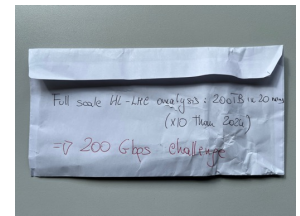 Full scale HL-LHC analysis : 200TB in 20 mins
(x10 than 2024)
=> 200 Gbps challenge